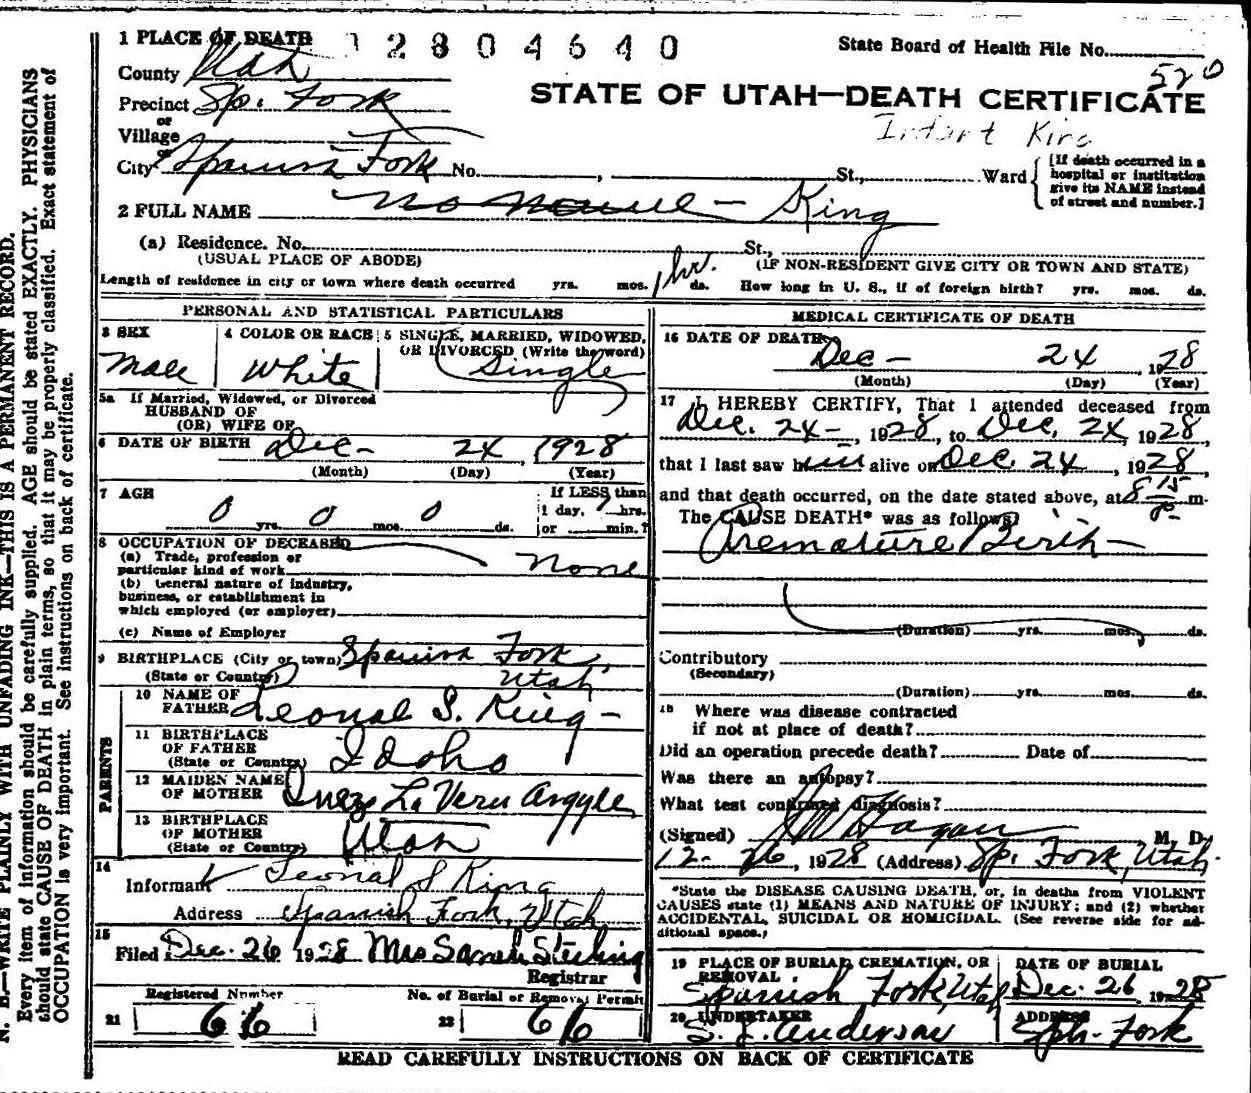 1 PLACE OF DEATH 12804640 State Board of Health File No.
520
County Utah
STATE OF UTAH—DEATH CERTIFICATE
Precinct Sp. Fork
or
Infant King
Village
or
City Spanish Fork No. , St., Ward
[If death occurred in a
hospital or institution
give its NAME instead
of street and number.]
2 FULL NAME no name - King
(a) Residence. No. St.,
(USUAL PLACE OF ABODE) (IF NON-RESIDENT GIVE CITY OR TOWN AND STATE)
Length of residence in city or town where death occurred yrs. mos. 1 hr. ds. How long in U. S., if of foreign birth? yrs. mos. ds.
PERSONAL AND STATISTICAL PARTICULARS
3 SEX 4 COLOR OR RACE 5 SINGLE, MARRIED, WIDOWED,
OR DIVORCED (Write the word)
Male White Single
5a If Married, Widowed, or Divorced
HUSBAND OF
(OR) WIFE OF
6 DATE OF BIRTH Dec - 24, 1928
(Month) (Day) (Year)
7 AGE If LESS than
1 day, hrs.
0 yrs. 0 mos. 0 ds. or min.?
8 OCCUPATION OF DECEASED
(a) Trade, profession or
particular kind of work None
(b) General nature of industry,
business, or establishment in
which employed (or employer)
(c) Name of Employer
9 BIRTHPLACE (City or town) Spanish Fork,
(State or Country) Utah
PARENTS
10 NAME OF
FATHER Leonal S. King -
11 BIRTHPLACE
OF FATHER
(State or Country) Idaho
12 MAIDEN NAME
OF MOTHER Inez La Vern Argyle
13 BIRTHPLACE
OF MOTHER
(State or Country) Utah
14
Informant Leonal S King
Address Spanish Fork, Utah
15
Filed Dec. 26 1928 Mrs Sarah Sterling
Registrar
Registered Number No. of Burial or Removal Permit
21 66 22 66
MEDICAL CERTIFICATE OF DEATH
16 DATE OF DEATH
Dec - 24, 1928
(Month) (Day) (Year)
17 I HEREBY CERTIFY, That I attended deceased from
Dec. 24 -, 1928, to Dec. 24, 1928,
that I last saw him alive on Dec. 24, 1928,
and that death occurred, on the date stated above, at 8 15 m.
The CAUSE DEATH* was as follows:
Premature Birth -
(Duration) yrs. mos. ds.
Contributory
(Secondary)
(Duration) yrs. mos. ds.
18 Where was disease contracted
if not at place of death?
Did an operation precede death? Date of
Was there an autopsy?
What test confirmed diagnosis?
(Signed) Hagan M. D.
12-26, 1928 (Address) Sp. Fork, Utah.
*State the DISEASE CAUSING DEATH, or, in deaths from VIOLENT
CAUSES state (1) MEANS AND NATURE OF INJURY; and (2) whether
ACCIDENTAL, SUICIDAL OR HOMICIDAL. (See reverse side for ad-
ditional space.)
19 PLACE OF BURIAL, CREMATION, OR DATE OF BURIAL
REMOVAL
Spanish Fork, Utah Dec. 26 1928
20 UNDERTAKER ADDRESS
S. J. Anderson Sph. Fork
READ CAREFULLY INSTRUCTIONS ON BACK OF CERTIFICATE
N. B.—WRITE PLAINLY WITH UNFADING INK—THIS IS A PERMANENT RECORD.
Every item of information should be carefully supplied. AGE should be stated EXACTLY. PHYSICIANS
should state CAUSE OF DEATH in plain terms, so that it may be properly classified. Exact statement of
OCCUPATION is very important. See instructions on back of certificate.